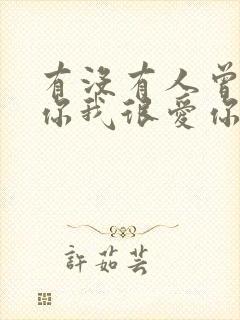 有沒有人曾
你我很愛你
許茹芸